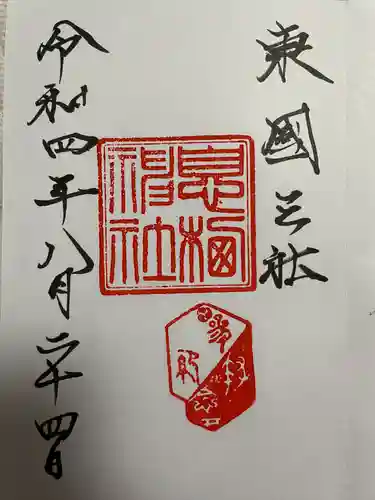 東國三社
息栖神社
令和四年八月二十四日